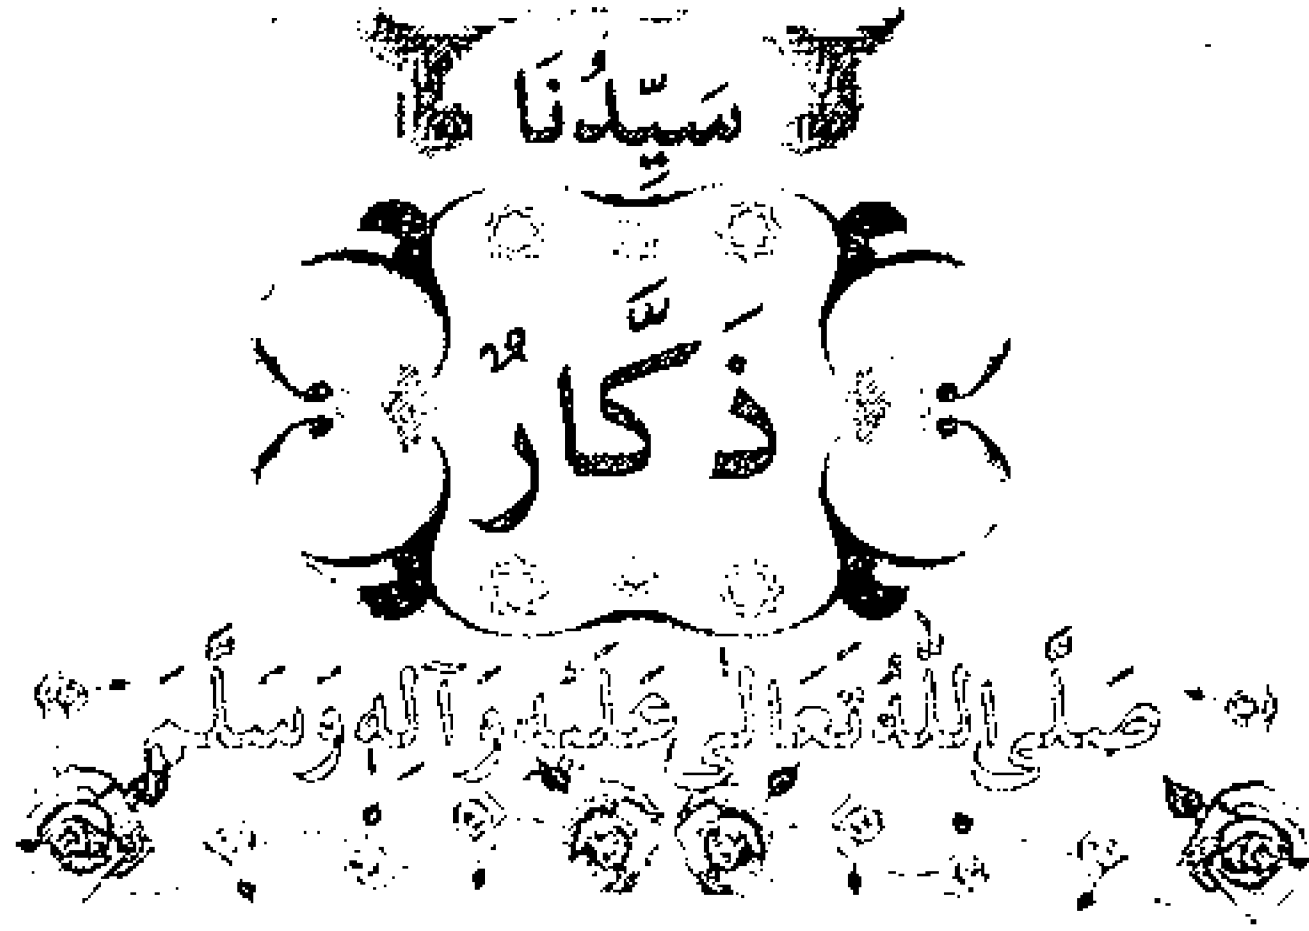 سَيِّدُنَا
ذَكَّارٌ
صَلَّى اللّٰهُ تَعَالٰى عَلَيْهِ وَآلِهٖ وَسَلَّمَ